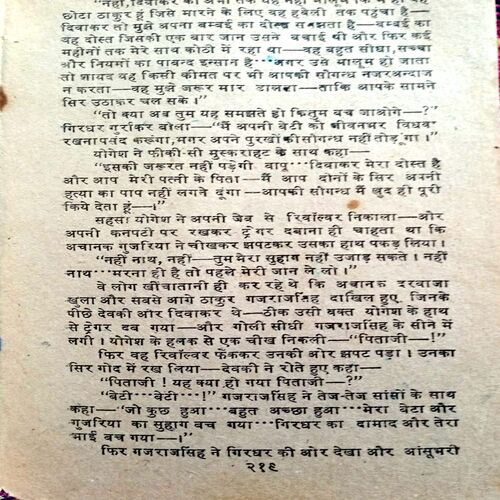 "नहीं, दिवाकर को अभी तक यह नहीं मालूम कि मैं ही वह
छोटा ठाकुर हूं जिसे मारने के लिए वह हवेली तक पहुंचा है—
दिवाकर तो मुझे अपना बम्बई का दोस्त समझता है—बम्बई का
वह दोस्त जिसकी एक बार जान उसने बचाई थी और फिर कई
महीनों तक मेरे साथ कोठी में रहा था—वह बहुत सीधा, सच्चा
और नियमों का पाबन्द इन्सान है···अगर उसे मालूम हो जाता
तो शायद वह किसी कीमत पर भी आपकी सौगन्ध नजरअन्दाज
न करता—वह मुझे जरूर मार डालता—ताकि आपके सामने
सिर उठाकर चल सके।"
"तो क्या अब तुम यह समझते हो कि तुम बच जाओगे—?"
गिरधर गुर्राकर बोला—"मैं अपनी बेटी को जीवनभर विधवा
रखना पसंद करूंगा, मगर अपने पुरखों की सौगन्ध नहीं तोड़ूंगा।"
योगेश ने फीकी-सी मुस्कराहट के साथ कहा—
"इसकी जरूरत नहीं पड़ेगी बापू···दिवाकर मेरा दोस्त है
और आप मेरी पत्नी के पिता—मैं आप दोनों के सिर अपनी
हत्या का पाप नहीं लगने दूंगा—आपकी सौगन्ध मैं खुद ही पूरी
किये देता हूं—।"
सहसा योगेश ने अपनी जेब से रिवॉल्वर निकाला—और
अपनी कनपटी पर रखकर ट्रेगर दबाना ही चाहता था कि
अचानक गुजरिया ने चीखकर झपटकर उसका हाथ पकड़ लिया।
"नहीं नाथ, नहीं—तुम मेरा सुहाग नहीं उजाड़ सकते। नहीं
नाथ···मरना ही है तो पहले मेरी जान ले लो।"
वे लोग खींचातानी ही कर रहे थे कि अचानक दरवाजा
खुला और सबसे आगे ठाकुर गजराजसिंह दाखिल हुए, जिनके
पीछे देवकी और दिवाकर थे—ठीक उसी वक्त योगेश के हाथ
से ट्रेगर दब गया—और गोली सीधी गजराजसिंह के सीने में
लगी। योगेश के हलक से एक चीख निकली—"पिताजी—!"
फिर वह रिवॉल्वर फेंककर उनकी ओर झपट पड़ा। उनका
सिर गोद में रख लिया—देवकी ने रोते हुए कहा—
"पिताजी! यह क्या हो गया पिताजी—?"
"बेटी···बेटी···!" गजराजसिंह ने तेज-तेज सांसों के साथ
कहा—"जो कुछ हुआ···बहुत अच्छा हुआ···मेरा बेटा और
गुजरिया का सुहाग बच गया···गिरधर का दामाद और तेरा
भाई बच गया—।"
फिर गजराजसिंह ने गिरधर की ओर देखा और आंसूभरी
२१९